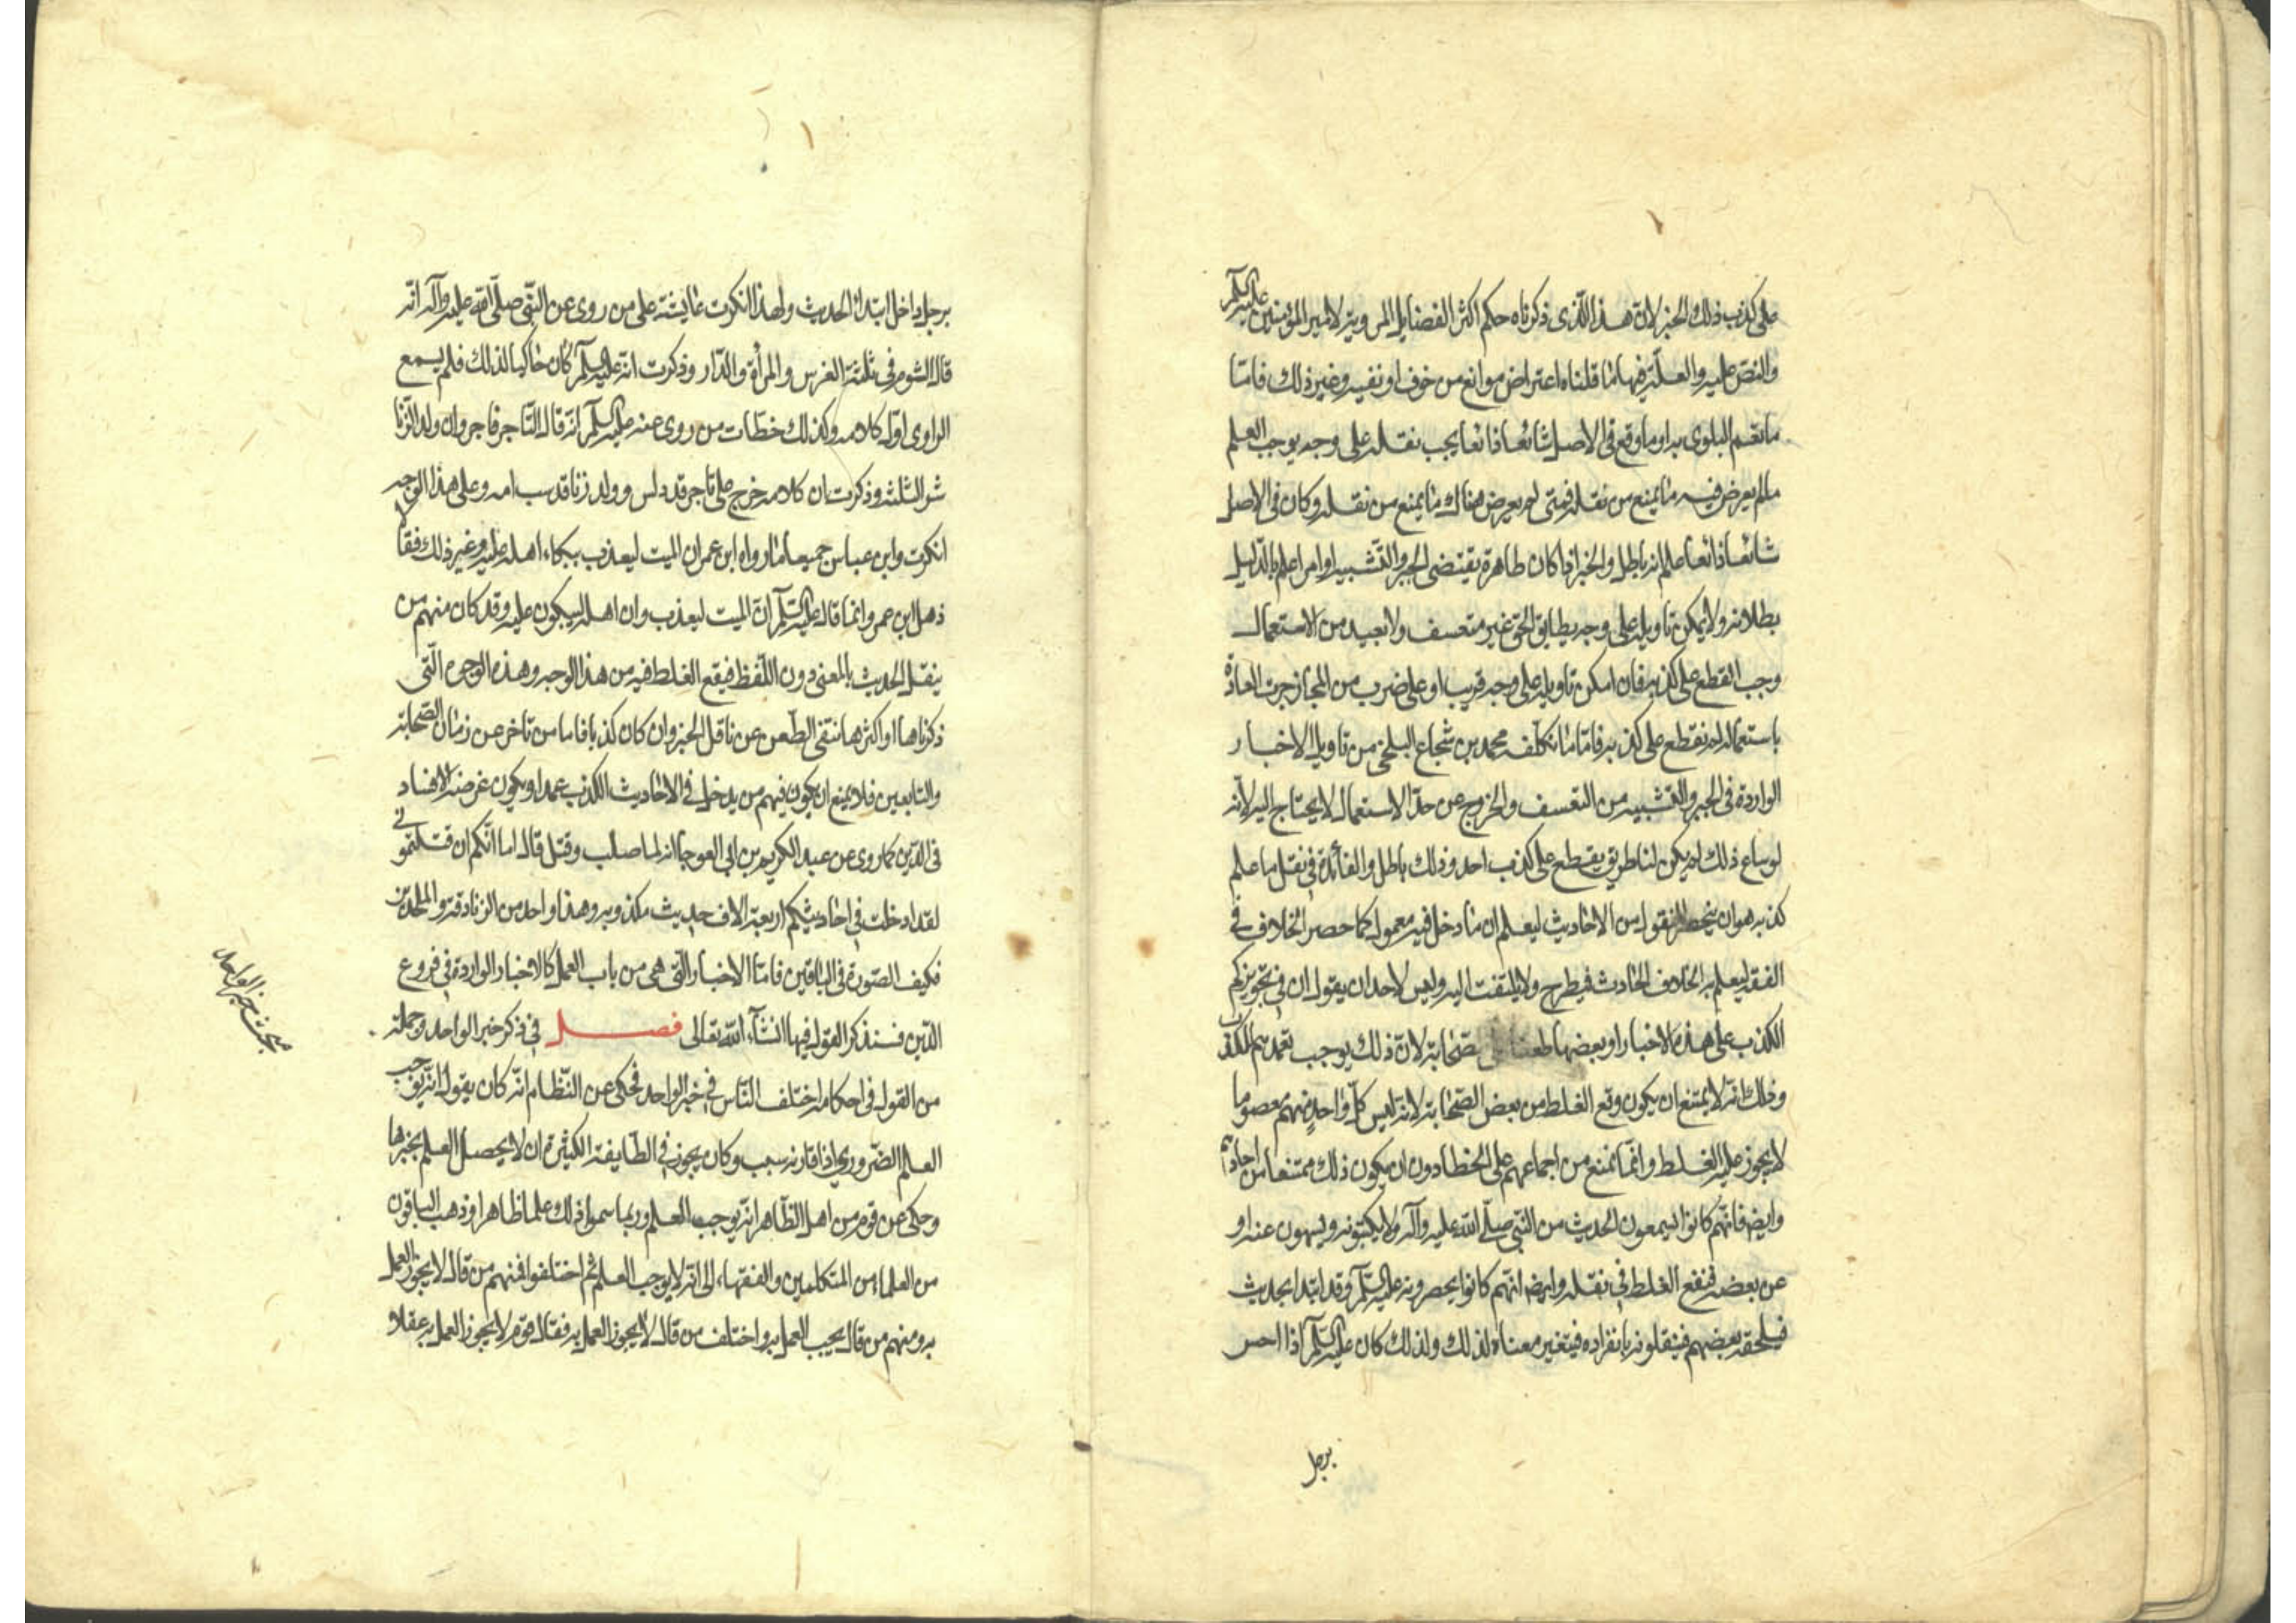 على كذب ذلك الخبر لان هذا الذى ذكرناه حكم اكثر الفضايل المروية لامير المؤمنين عليه السلم
والنص عليه والعلة فيها ما قلناه اعتراض موانع من خوف او تقية وغير ذلك فاما
ما تعم البلوى به او ما وقع فى الاصل شائعا ذائعا يجب نقله على وجه يوجب العلم
ما لم يعرض فيه ما يمنع من نقله فمتى لم يعرض هناك ما يمنع من نقله وكان فى الاصل
شائعا ذائعا علم انه باطل والخبر اذا كان ظاهره يقتضى الجبر والتشبيه او امرا علم بالدليل
بطلانه ولا يمكن تاويله على وجه يطابق الحق غير متعسف ولا بعيد من الاستعمال
وجب القطع على كذبه فان امكن تاويله على وجه قريب او على ضرب من المجاز جرت العادة
باستعماله لم نقطع على كذبه فاما ما تكلفه محمد بن شجاع البلخى من تاويل الاخبار
الواردة فى الجبر والتشبيه من التعسف والخروج عن حد الاستعمال لا يحتاج اليه لانه
لو ساغ ذلك لم يكن لنا طريق يقطع على كذب احد وذلك باطل والفائدة فى نقل ما علم
كذبه هو ان ينحصر المنقول من الاحاديث ليعلم ان ما دخل فيه معمول كما حصر الخلاف فى
الفقه ليعلم به الخلاف الحادث فيطرح ولا يلتفت اليه وليس لاحد ان يقول ان فى تجويزكم
الكذب على هذه الاخبار او بعضها طعنا على الصحابة لان ذلك يوجب تعمدهم الكذب
وذلك انه لا يمتنع ان يكون وقع الغلط من بعض الصحابة لانه ليس كل واحد منهم معصوما
لا يجوز عليه الغلط وانما نمنع من اجماعهم على الخطا دون ان يكون ذلك ممتنعا من احادهم
وايضا فانهم كانوا يسمعون الحديث من النبى صلى الله عليه وآله ولا يكتبونه ويسهون عنه او
عن بعضه فيقع الغلط فى نقله وايضا انهم كانوا يحضرونه عليه السلم وقد ابتدا بحديث
فيلحقه بعضهم فينقلونه بانفراده فيتغير معناه لذلك ولذلك كان عليه السلم اذا احس
برجل
برجل داخل ابتدا الحديث ولهذا انكرت عايشة على من روى عن النبى صلى الله عليه وآله انه
قال الشوم فى ثلثة الفرس والمرأة والدار وذكرت انه عليه السلم كان حاكيا لذلك فلم يسمع
الراوى اول كلامه وكذلك خطات من روى عنه عليه السلم انه قال التاجر فاجر وان ولد الزنا
شر الثلثة وذكرت ان كلامه خرج على تاجر قد دلس وولد زنا قد سب امه وعلى هذا الوجه
انكرت وابن عباس جميعا ما رواه ابن عمر ان الميت ليعذب ببكاء اهله عليه وغير ذلك فقالا
ذهل ابن عمر وانما قال عليه السلم ان الميت ليعذب وان اهله ليبكون عليه وقد كان منهم من
ينقل الحديث بالمعنى دون اللفظ فيقع الغلط فيه من هذا الوجه وهذه الوجوه التى
ذكرناها او اكثرها ننتفى الطعن عن ناقل الخبر وان كان كذبا فاما من تاخر عن زمان الصحابة
والتابعين فلا يمنع ان يكون فيهم من يدخل فى الاحاديث الكذب عمدا ويكون غرضه الافساد
فى الدين كما روى عن عبد الكريم بن ابى العوجا انه لما صلب وقتل قال اما انكم ان قتلتمونى
لقد ادخلت فى احاديثكم اربعة الاف حديث مكذوبه وهذا واحد من الزنادقة والملحدين
فكيف الصورة فى الباقين فاما الاخبار التى هى من باب العمل كالاخبار الواردة فى فروع
الدين فسنذكر القول فيها انشآء الله تعالى فصل فى ذكر خبر الواحد وجملة
من القول فى احكامه اختلف الناس فى خبر الواحد فحكى عن النظام انه كان يقول انه يوجب
العلم الضرورى اذا قارنه سبب وكان يجوز فى الطايفة الكثيرة ان لا يحصل العلم بخبرها
وحكى عن قوم من اهل الظاهر انه يوجب العلم وربما سموا ذلك علما ظاهرا وذهب الباقون
من العلماء من المتكلمين والفقهاء الى انه لا يوجب العلم ثم اختلفوا فمنهم من قال لا يجوز العمل
به ومنهم من قال يجب العمل به واختلف من قال لا يجوز العمل به فقال قوم لا يجوز العمل به عقلا و
مبحث خبر الواحد